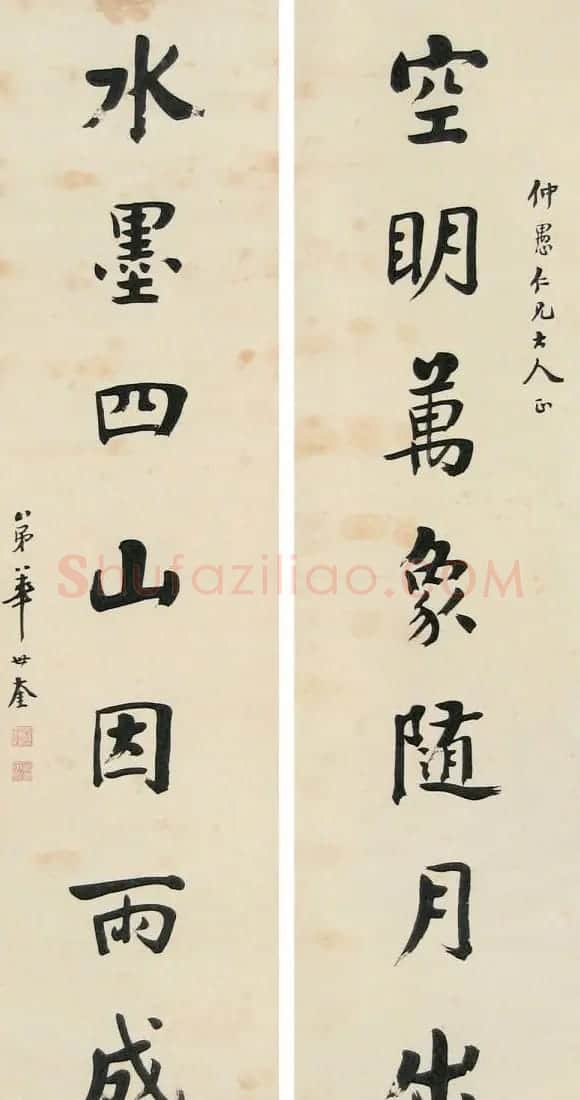 仲愚仁兄大人正
空明萬象随月出
水墨四山因雨成
弟華世奎
Shufaziliao.COM